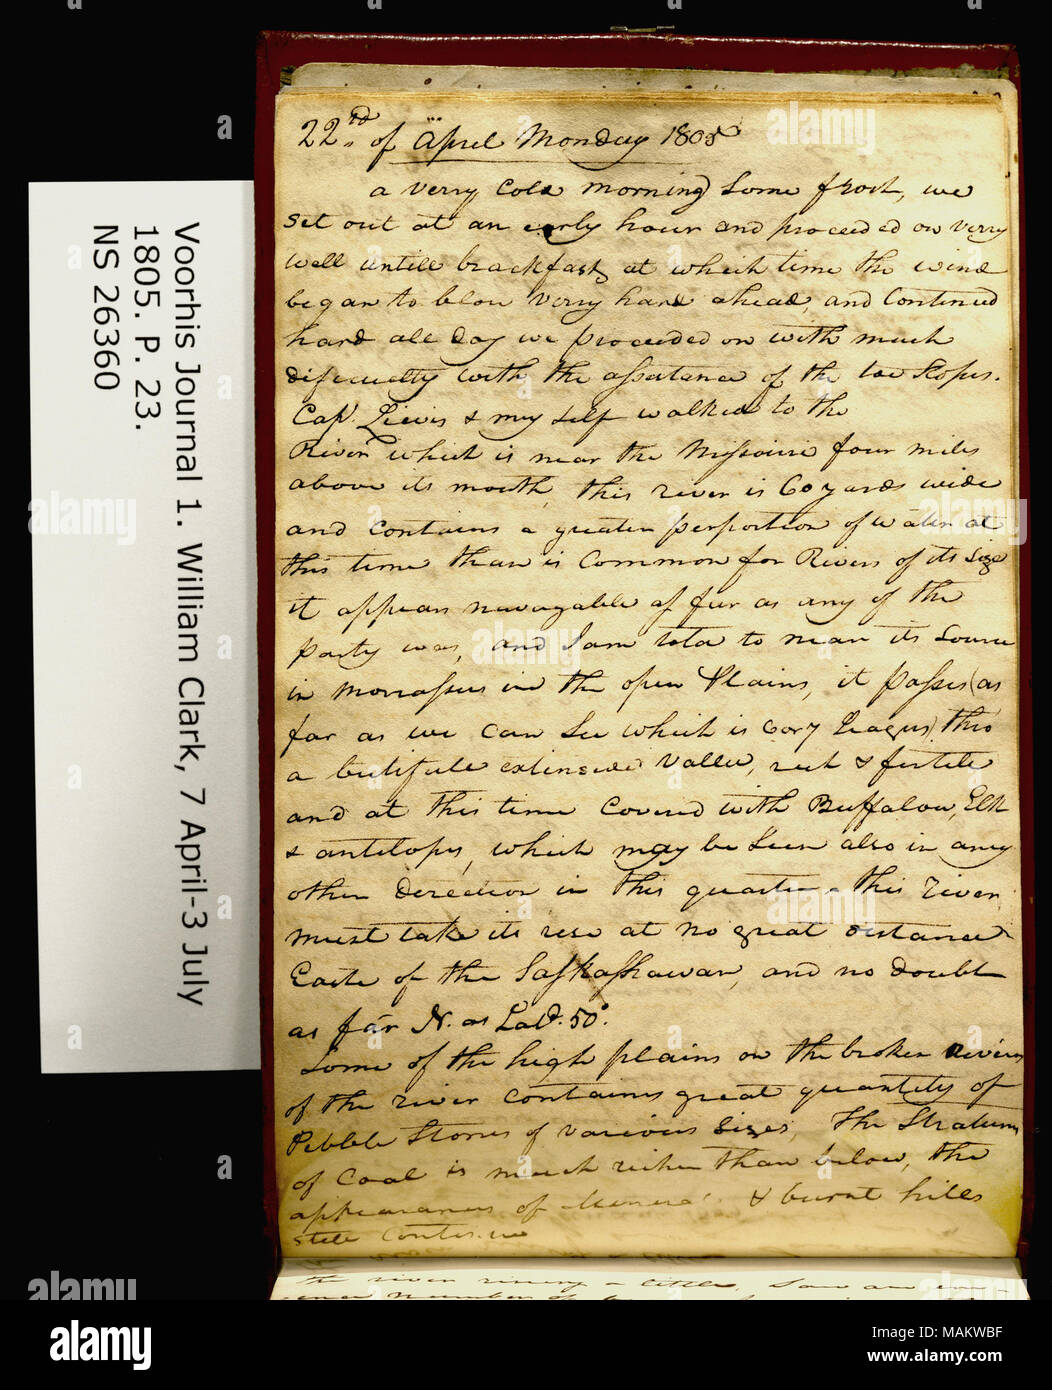 22nd of April Monday 1805
a verry Cold morning Some frost, we
Set out at an early hour and proceeded on verry
well untill brackfast, at which time the wind
began to blow verry hard ahead, and Continued
hard all day we proceeded on with much
dificuelty with the assistance of the toe Ropes.
Capt. Lewis & my self walked to the
River which is near the Missouri four miles
above its mouth, this river is 60 yards wide
and contains a greater perportion of water at
this time than is Common for Rivers of its Size
it appears navagable as fur as any of the
party was, and I am told to near its Source
in morrasses in the open Plains, it passes (as
far as we can See which is 6 or 7 Leagus) thro
a butifull extinsive vallie, rich & fertile
and at this time Covered with Buffalow, Elk
& antelopes, which may be Seen also in any
other derection in this quarter. this river
must take its rise at no great distance
Easte of the Saskashawan, and no doubt
as far N. as Latd. 50°.
Some of the high plains on the broken
of the river contains great quantity of
Pebble Stones of various Sizes, The Stratum
of Coal is much richer than below, the
appearances of & burnt hills
still Continue
the river riseing a little, Saw an
number of
Voorhis Journal 1. William Clark, 7 April-3 July
1805. P. 23.
NS 26360
alamy
Image ID: MAKWBF
www.alamy.com